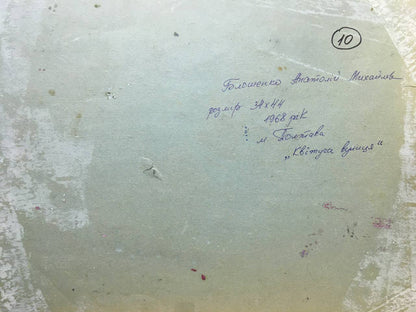 10
Голошенко Анатолій Михайлов
розмір 34х44
1968 рік
м. Полтава
„Квітуча вулиця"